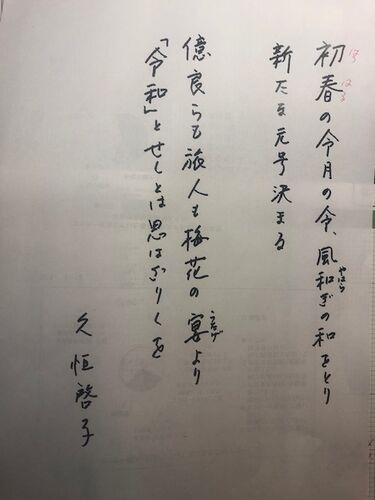 初春の令月の令、風和ぎの和をとり
はつ はる
やはら
新たな元号決まる
億良らも旅人も梅花の宴より
うたげ
「令和」とせしとは思はざりしを
久恒啓子